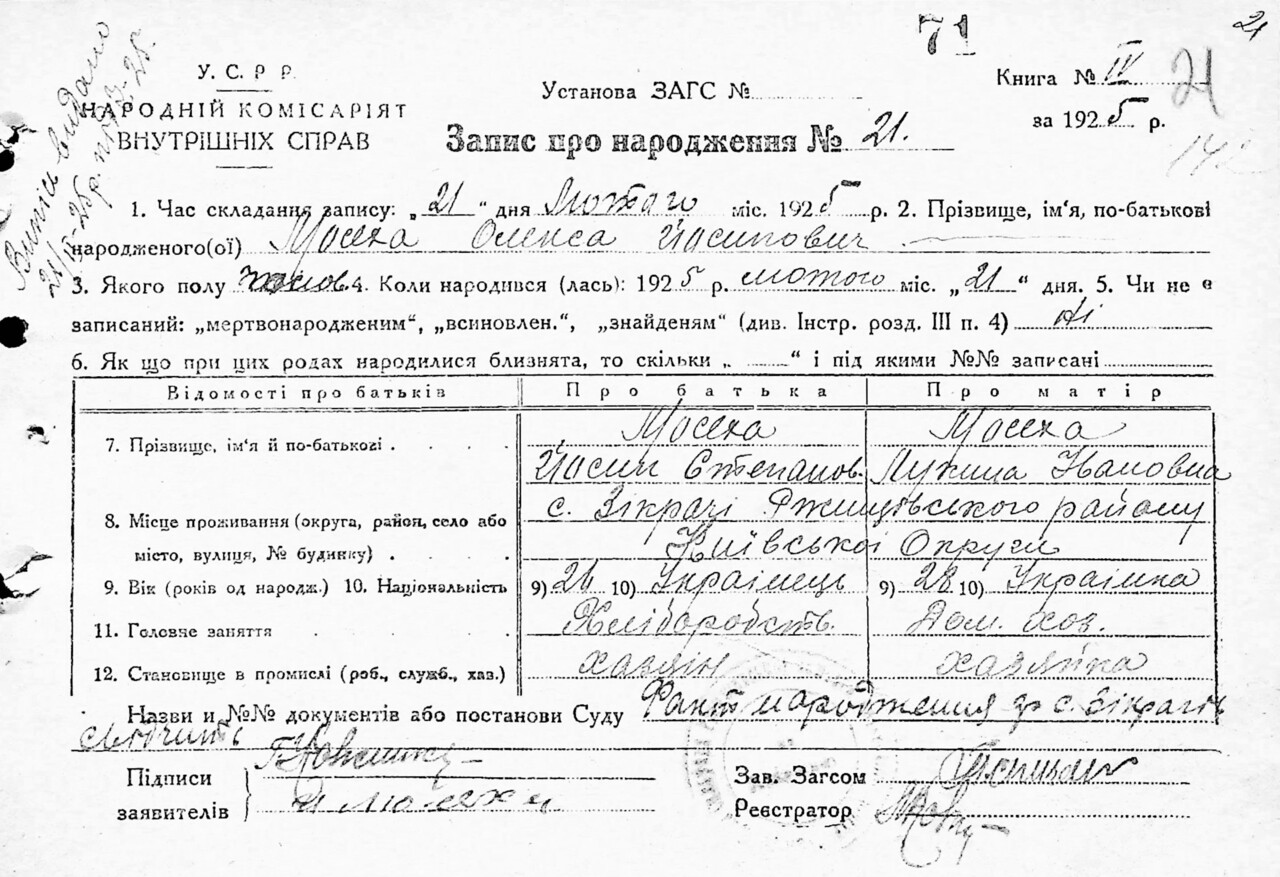 71
21
У.С.Р.Р.
НАРОДНІЙ КОМІСАРІЯТ
ВНУТРІШНІХ СПРАВ
Установа ЗАГС №
Книга № IV
21
за 1925 р.
Запис про народження № 21.
Випис видано
1. Час складання запису: „21“ дня Лютого міс. 1925 р. 2. Прізвище, ім'я, по-батькові
народженого(ої) Мосеха Олекса Йосипович
3. Якого полу чолов. 4. Коли народився (лась): 1925 р. лютого міс. „21“ дня. 5. Чи не є
записаний: „мертвонародженим“, „всиновлен.“, „знайденям“ (див. Інстр. розд. III п. 4) Ні
6. Як що при цих родах народилися близнята, то скільки „ “ і під якими №№ записані
Відомості про батьків Про батька Про матір
7. Прізвище, ім'я й по-батькові . Мосеха Мосеха
Йосип Степанов. Лукина Івановна
8. Місце проживання (округа, район, село або с. Зікрачі Ржищівського району
місто, вулиця, № будинку) . Київської Округи
9. Вік (років од народж.) 10. Національність 9) 26 10) Українець 9) 28 10) Українка
11. Головне заняття Хліборобств. Дом. хоз.
12. Становище в промислі (роб., служб., хаз.) хазяїн хазяйка
Назви и №№ документів або постанови Суду Факт народження гр. с. Зікрачів
свідчить
Підписи
заявителів
Зав. Загсом
Реєстратор